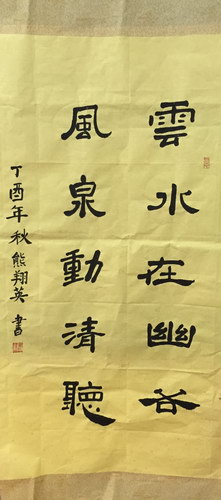 雲水在幽谷
風泉動清聽
丁酉年秋熊翔英書